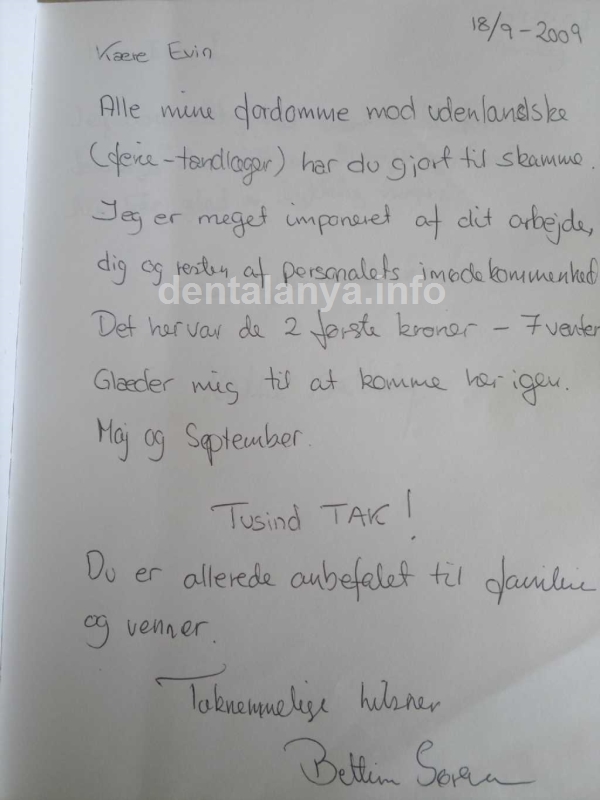 18/9-2009
Kære Evin
Alle mine fordomme mod udenlandske
(ferie-tandlæger) har du gjort til skamme.
Jeg er meget imponeret af dit arbejde,
dig og resten af personalets imødekommenhed
dentalanya.info
Det her var de 2 første kroner - 7 venter
Glæder mig til at komme her igen.
Maj og September.
Tusind TAK!
Du er allerede anbefalet til familie
og venner.
Taknemmelige hilsner